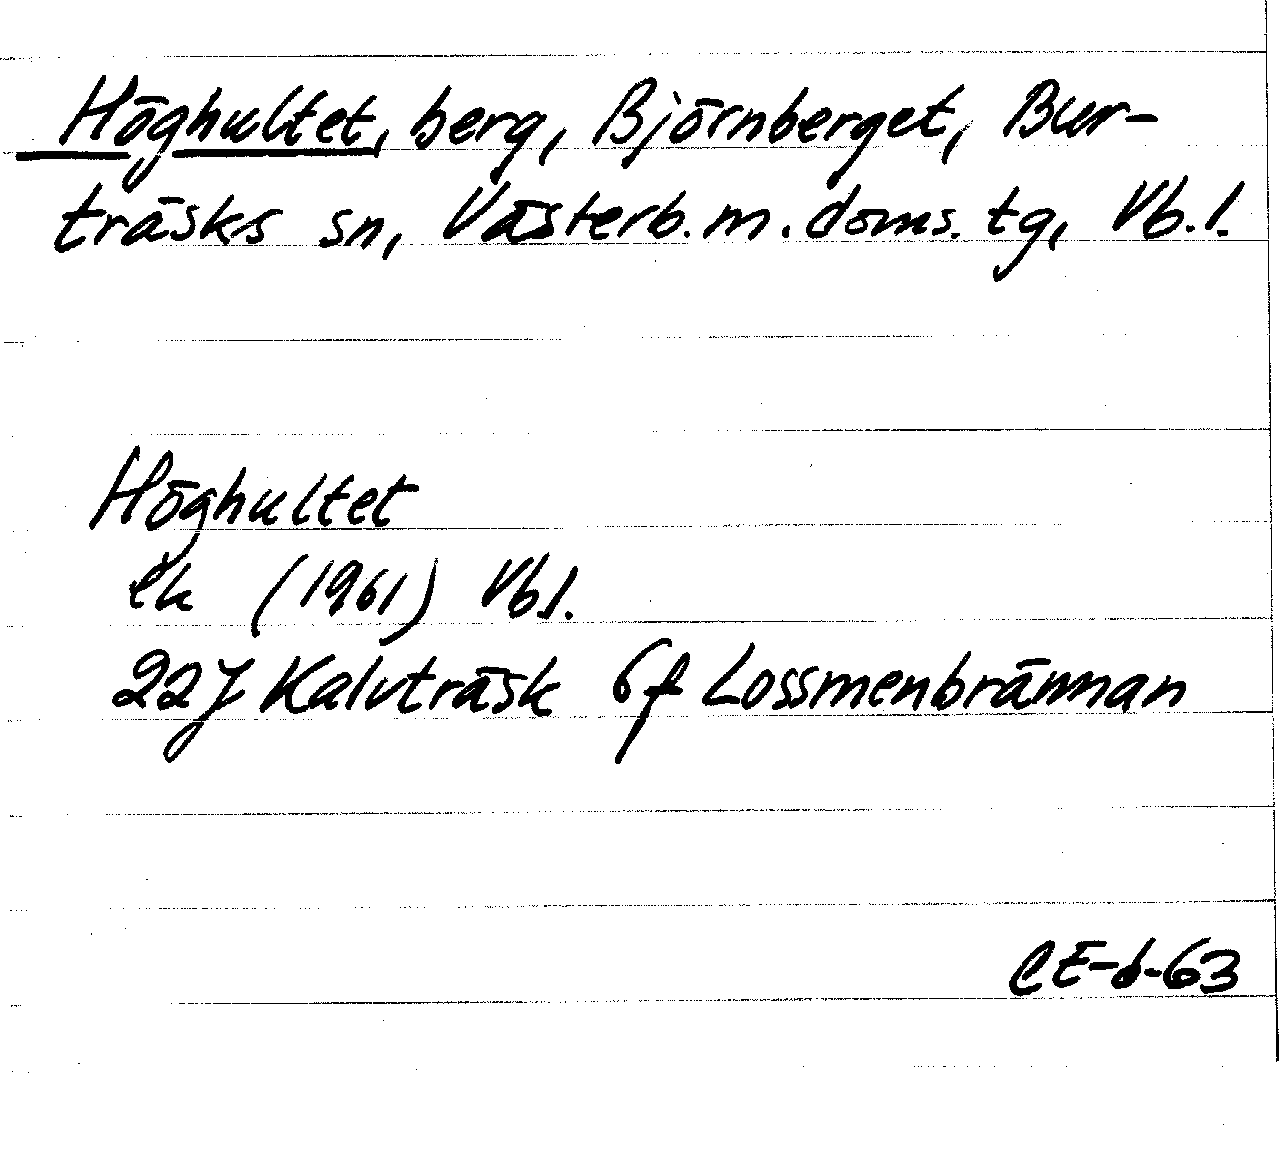 Höghultet, berg, Björnberget, Bur-
träsks sn, Västerb. m. doms. tg, Vb. l.
Höghultet
ek (1961) Vb l.
22J Kalvträsk 6f Lossmenbrännan
CE-d-63